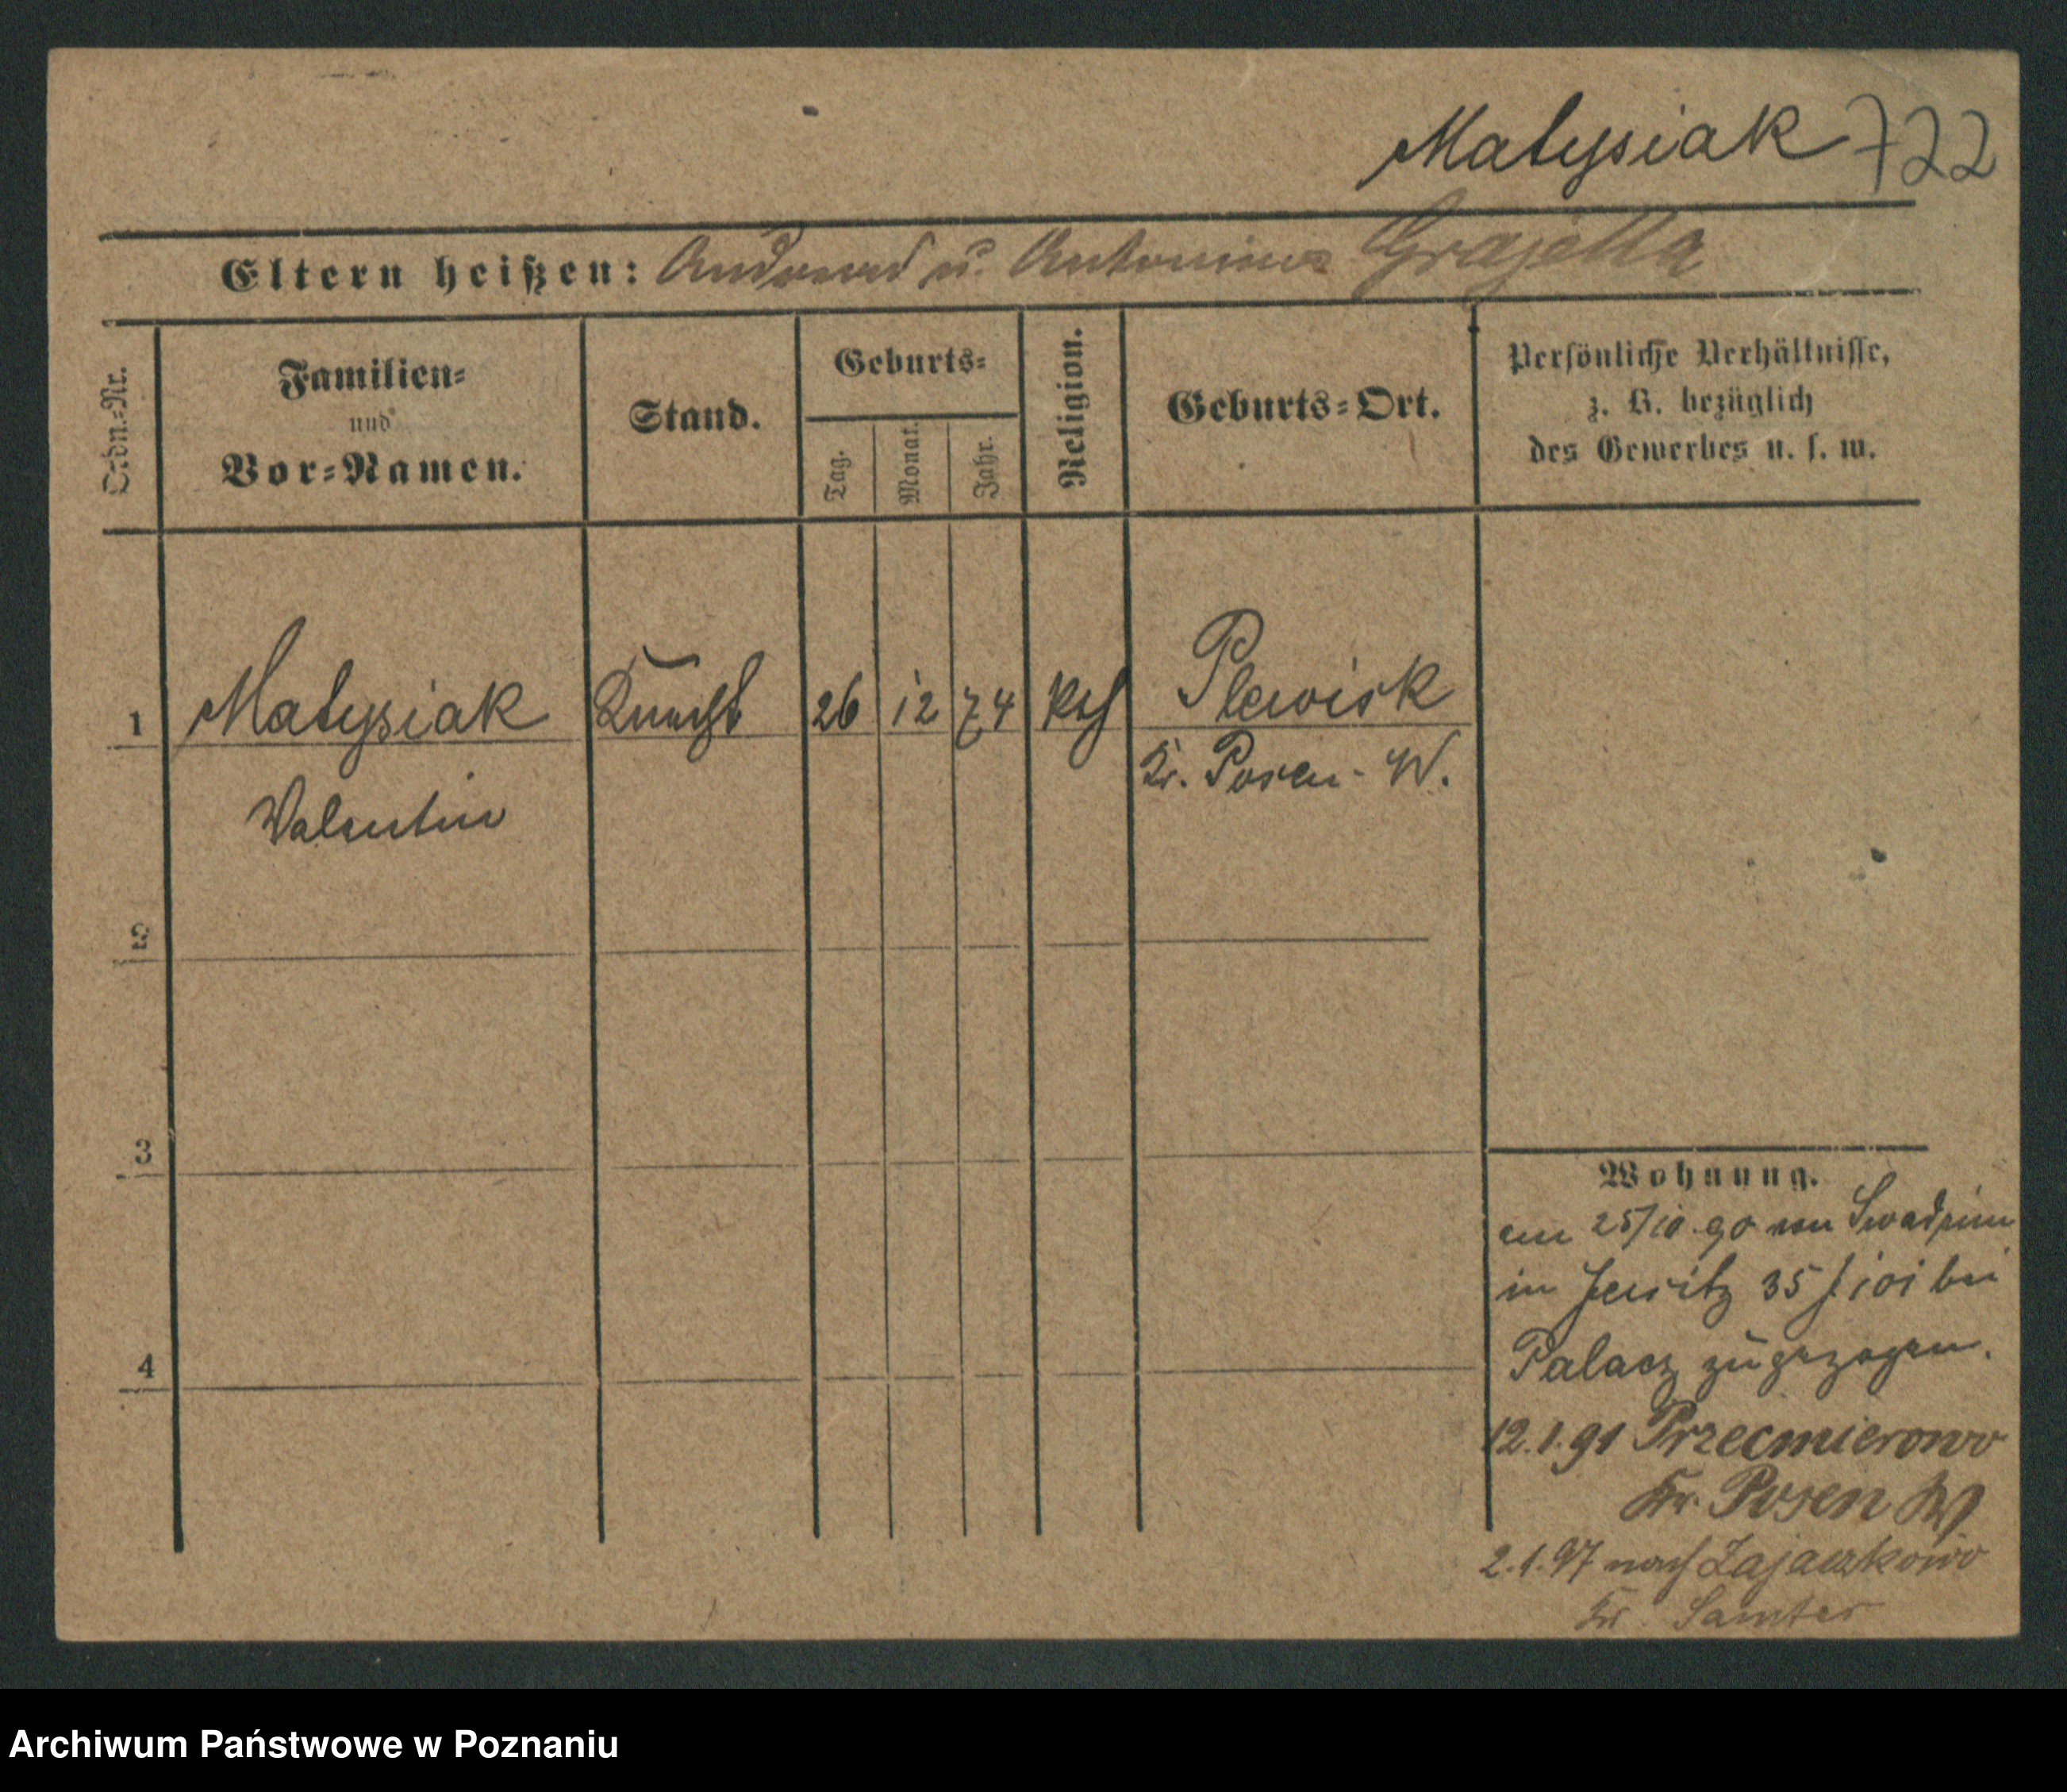 Matysiak 722
Eltern heißen: Andreas u. Antonina Grajetta
Ordn.=Nr.
Familien=
und
Vor=Namen.
Stand.
Geburts=
Tag.
Monat.
Jahr.
Religion.
Geburts=Ort.
Persönliche Verhältnisse,
z. B. bezüglich
des Gewerbes u. s. w.
1 Matysiak Knecht 26 12 74 kth Plewisk
Kr. Posen-W.
Valentin
2
3
4
Wohnung.
am 25/10.90 von Swadzim
in Jersitz 35 101 bei
Palacz zugezogen.
12.1.91 Przecmierowo
Kr. Posen W
2.1.97 nach Zajaczkowo
Kr. Samter
Archiwum Państwowe w Poznaniu